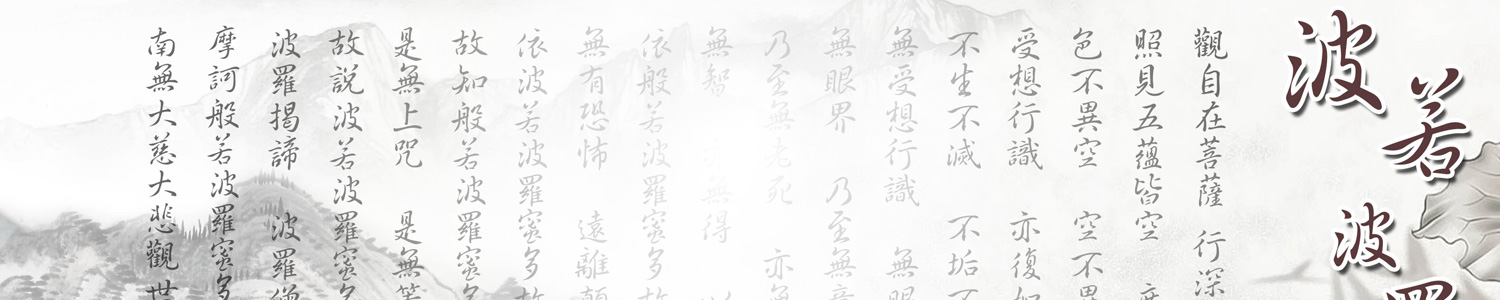 波若
波羅
觀自在菩薩 行深
照見五蘊皆空 度
色不異空 空不異
受想行識 亦復如
不生不滅 不垢不
無受想行識 無眼
無眼界 乃至無意
乃至無老死 亦無
無智 亦無得 以
依般若波羅蜜多故
無有恐怖 遠離顛
依波若波羅蜜多故
故知般若波羅蜜多
是無上咒 是無等
故説波若波羅蜜多
波羅揭諦 波羅僧
摩訶般若波羅蜜多
南無大慈大悲觀世